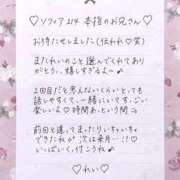 ♡ソフィア214 本指のお兄さん♡
お待たせしました(伝われ♡笑)
またれいのこと選んでくれてあり
がとう、嬉しすぎるよ〜
2回目だと思えないくらいとても
話しやすくて、一緒にいてすっごい
楽しいよ♡時間あっという間
前回と違って、まったりいちゃいちゃ
できたね♡次は来月…!?♡
いっぱいぃく、付こうね
♡れい♡